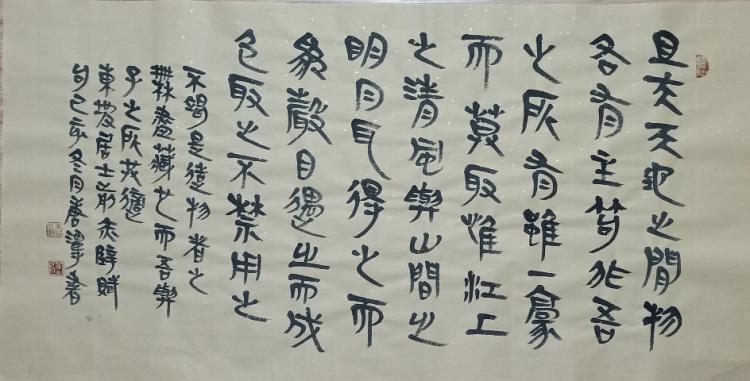 且夫天地之間物
各有主苟非吾
之所有雖一豪
而莫取惟江上
之清風與山間之
明月耳得之而
為聲目遇之而成
色取之不禁用之
不竭是造物者之
無盡藏也而吾與
子之所共適
東坡居士前赤壁賦
句己亥冬月書